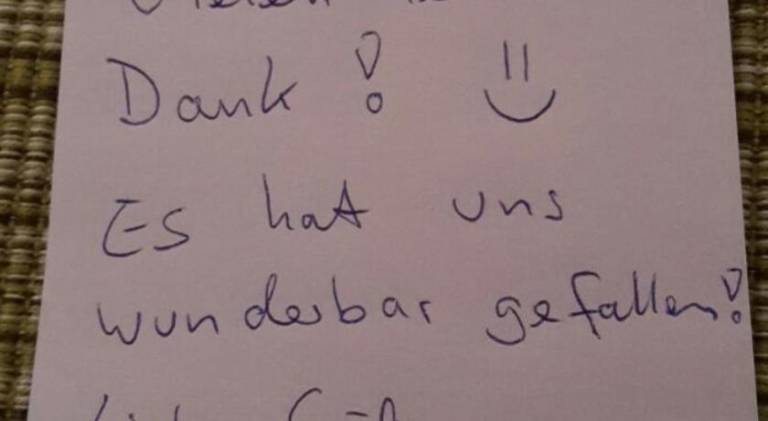 Vielen
Dank!
Es hat uns
wunderbar gefallen!